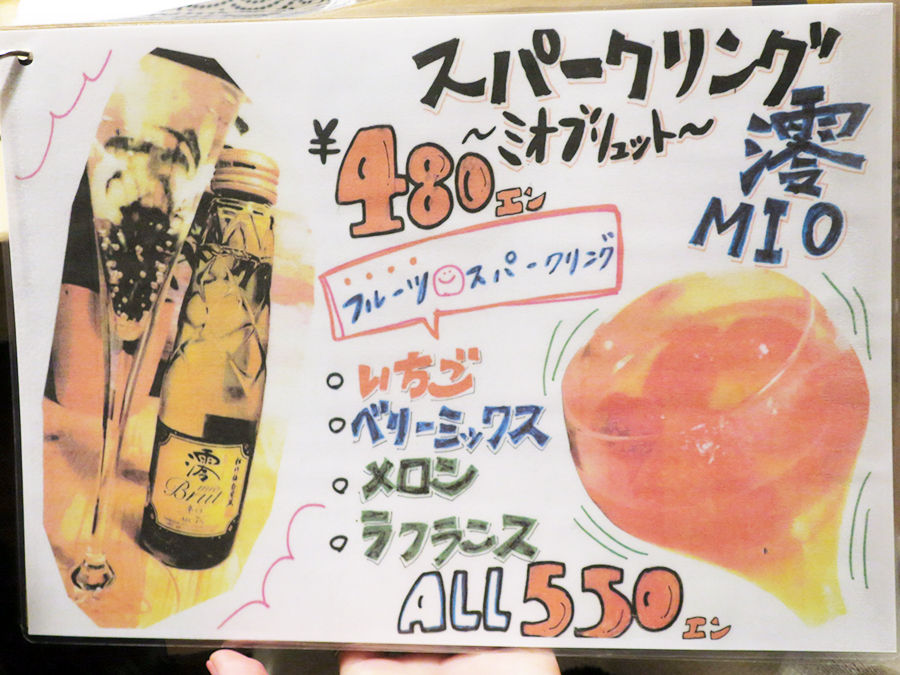 スパークリング
～ミオブリュット～
澪
MIO
¥480エン
フルーツスパークリング
○いちご
○ベリーミックス
○メロン
○ラフランス
ALL 550エン
澪
mio
Brut
辛口